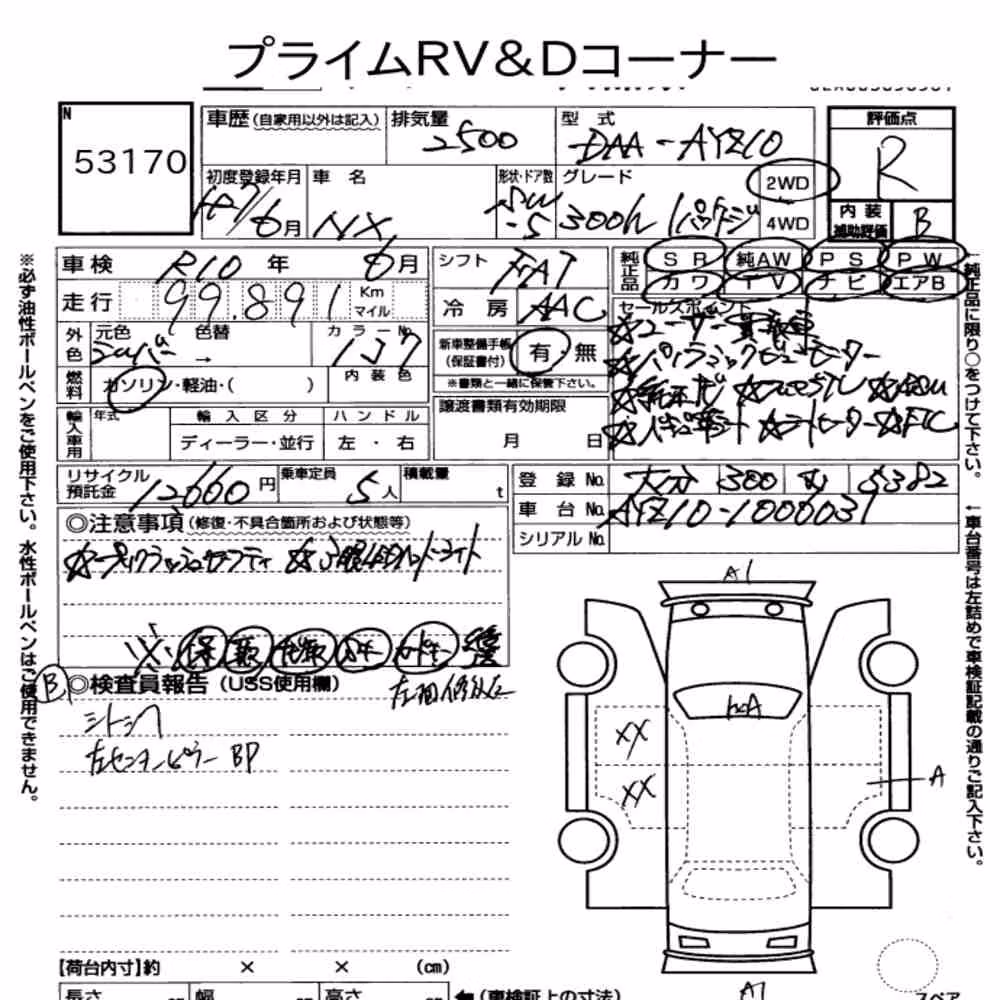 プライムRV&Dコーナー
N
53170
車歴 (自家用以外は記入)
排気量
2500
型式
DAA-AYZ10
評価点
R
初度登録年月
H27/6月
車名
NX
形状・ドア数
SW
-5
グレード
300h Iパッケージ
2WD
4WD
内装
補助評価
B
車検 R10年 6月
シフト FAT
純正品
SR 純AW PS PW
カワ TV ナビ エアB
走行 99,891 Km
マイル
冷房 AAC
セールスポイント
☆ユーザー買取車
外色
元色
シルバー
色替
→
カラーNo.
1J7
新車整備手帳
(保証書付)
有・無
※書類と一緒に保管下さい。
☆パノラミックビューモニター
燃料
ガソリン・軽油・( )
内装色
輸入車用
年式
輸入区分
ハンドル
ディーラー・並行
左・右
譲渡書類有効期限
月 日
リサイクル
預託金
12660円
乗車定員
5人
積載量
t
登録No. 大分 300 5382
車台No. AYZ10-1000031
シリアルNo.
◎注意事項 (修復・不具合箇所および状態等)
☆プリクラッシュセーフティ ☆3眼LEDヘッドライト
※ 保 取
B
◎検査員報告 (USS使用欄)
シートシワ
左センターピラーBP
A1
XX
XX
A
A1
【荷台内寸】約 × × (cm)
長さ
幅
高さ
(車検証上の寸法)
スペア
※必ず油性ボールペンをご使用下さい。水性ボールペンはご使用できません。
純正品に限り○をつけて下さい。
車台番号は左詰めで車検証記載の通りご記入下さい。